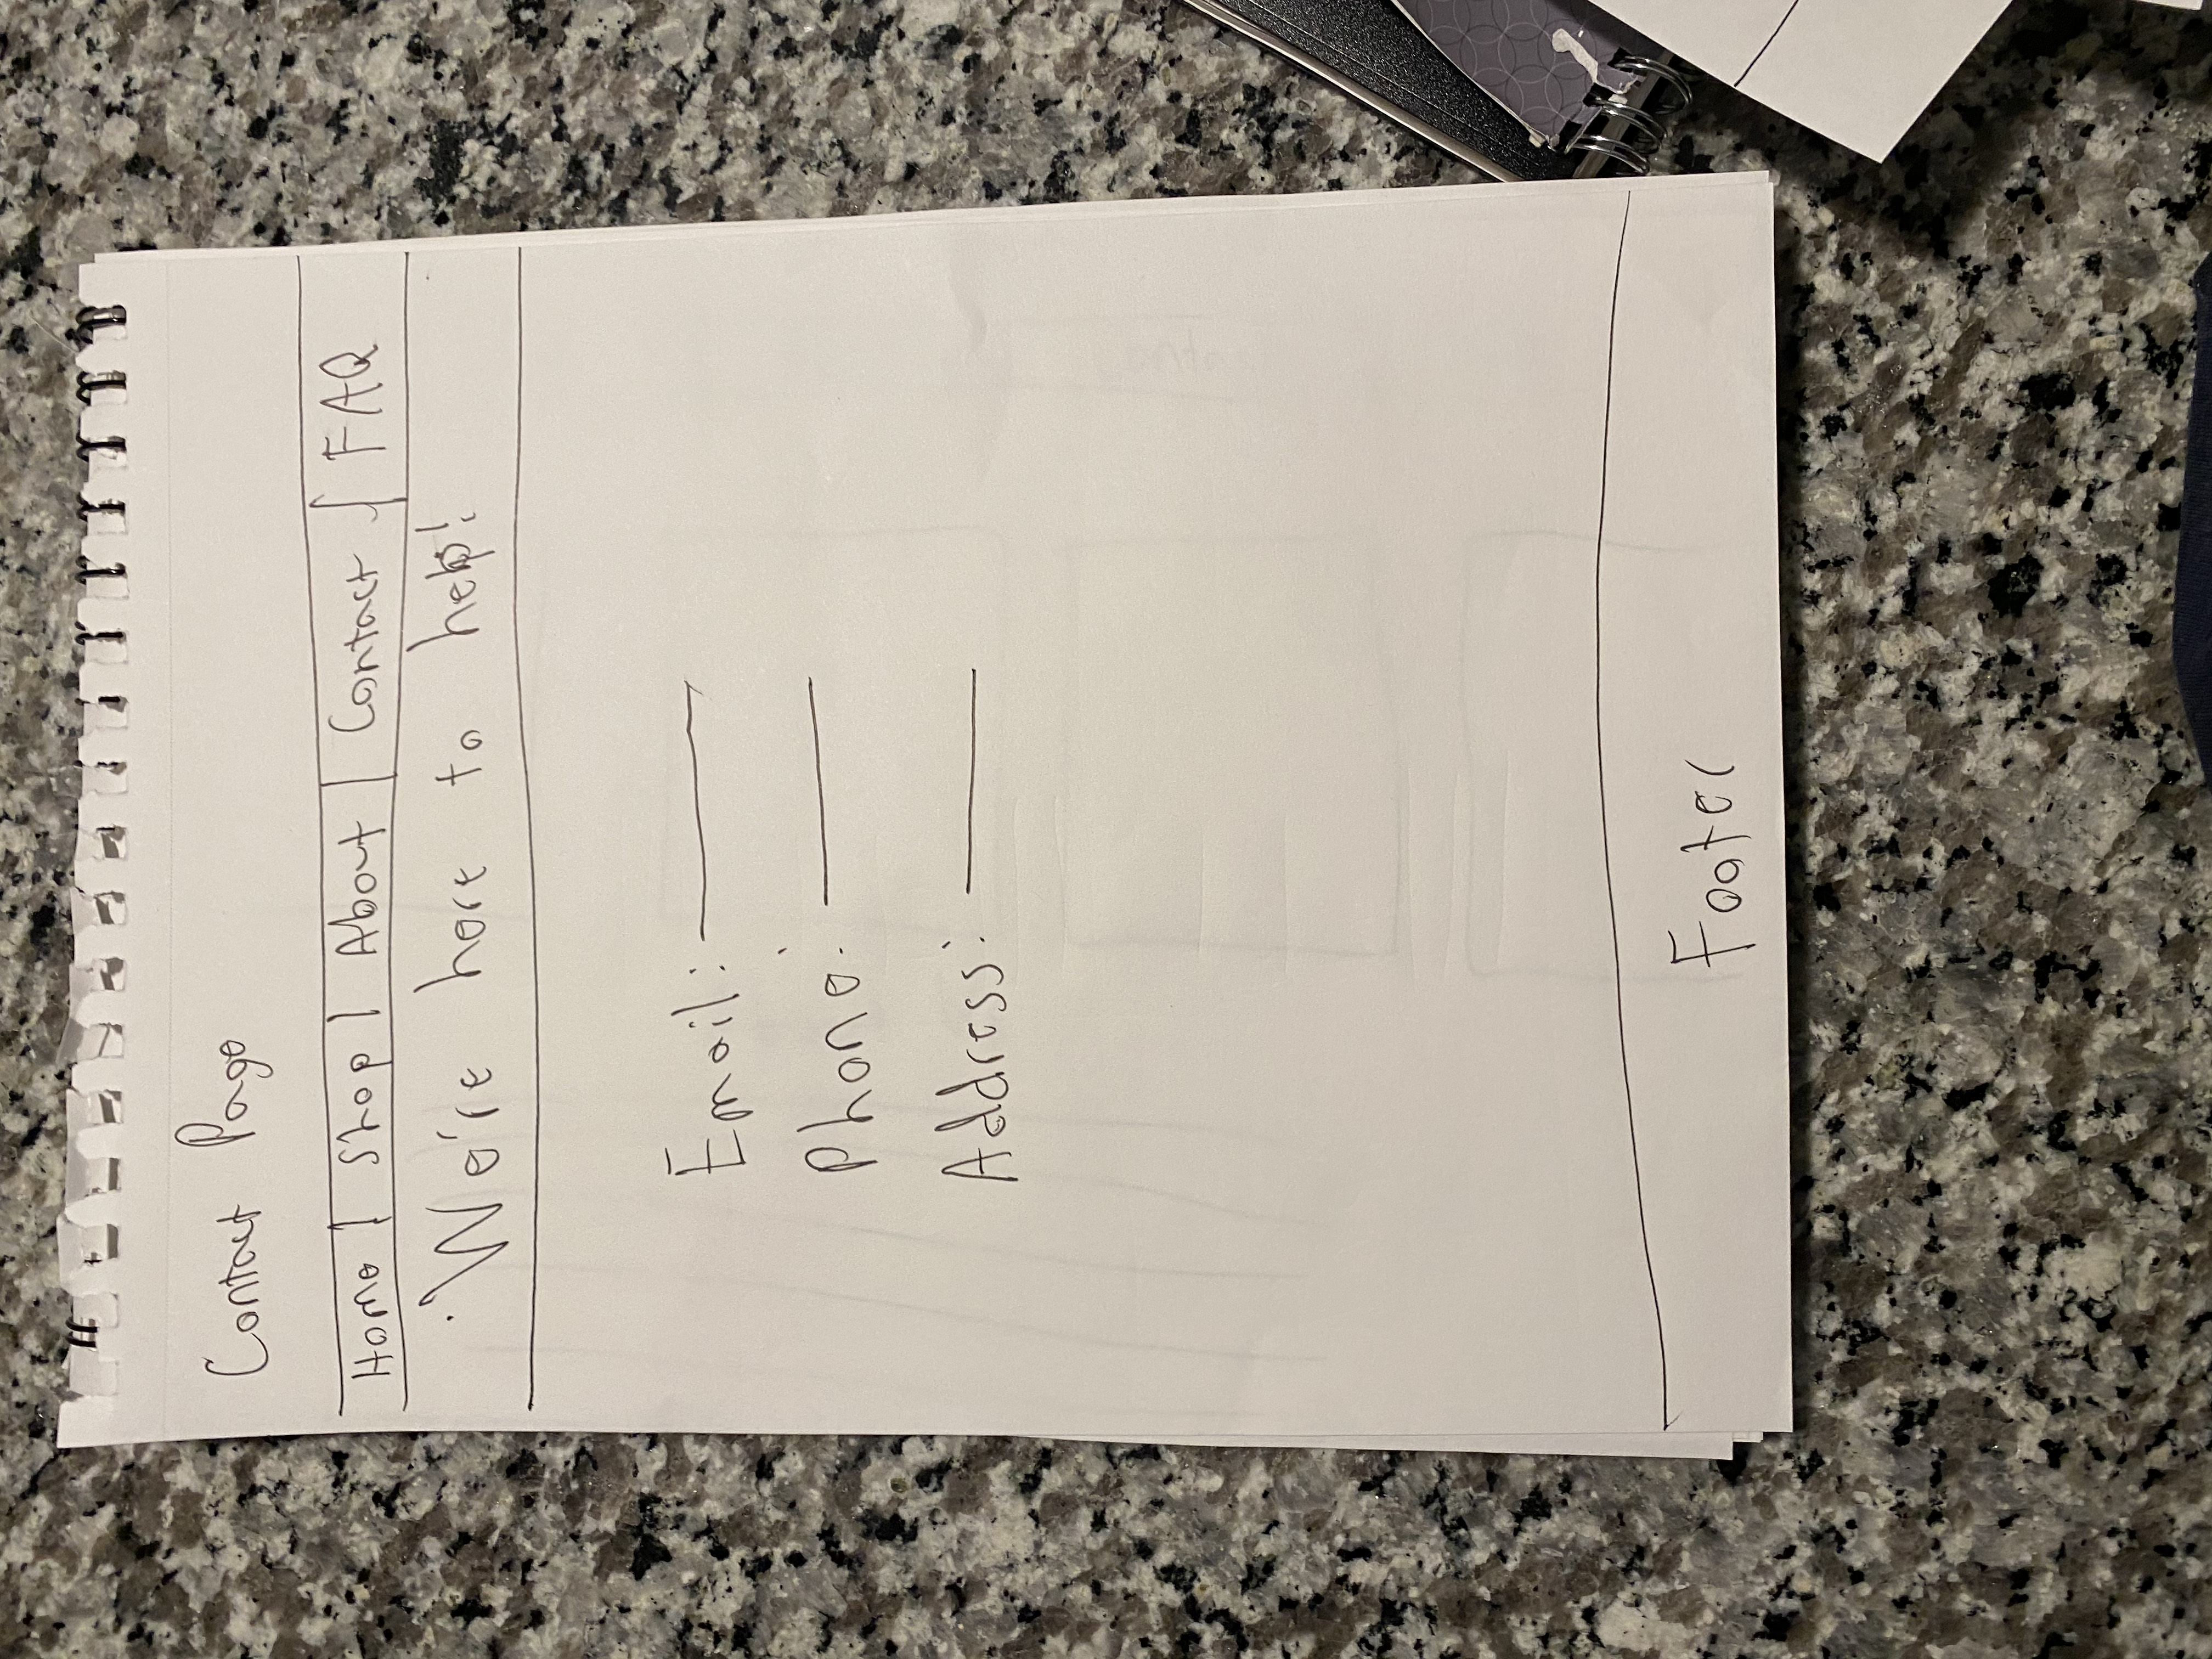 Contact Page
Home | Shop | About | Contact | FAQ
We're here to help!
Email: ______
Phone: ______
Address: ______
Footer